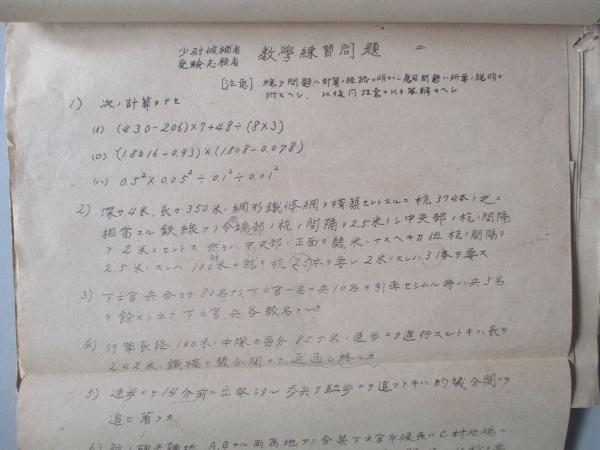 少尉候補者
受験志願者 数學練習問題 二
[注意] 總テ問題ハ計算ノ経路ヲ明カニシ應用問題ハ所要ノ説明ヲ
附スヘシ 以後同注意ニヨリ解スヘシ
1) 次ノ計算ヲナセ
(イ) (430-206)×7+48÷(8×3)
(ロ) (1.8016-0.93)×(1.808-0.078)
(ハ) 0.5²×0.05²÷0.1²÷0.01²
2) 深サ4米、長サ350米ノ網形鐵條網ヲ構築セントスルニ杭374本ト之ニ
相當スル鉄線アリ今両端部ノ杭ノ間隔ヲ2.5米トシ中央部ノ杭ノ間隔
ヲ2米ニセントス 然ラハ中央部ノ正面ヲ幾米トナスヘキカ但杭ノ間隔ヲ
2.5米トスレハ100米ニ就キ杭 本ヲ要シ2米ニスレハ31本ヲ要ス
3) 下士官兵合セテ80名アリ下士官一名ニ兵10名ヲ引率セシムル時ハ兵3名
ヲ餘スト云フ下士官、兵各幾名ナルカ
4) 行軍長径100米ノ中隊カ毎分85.5米ノ速歩ニテ進行スルトキハ長サ
242米ノ鐵橋ヲ幾分間ニテ通過シ終ルカ
5) 速歩ニテ14分前ニ出発シタル歩兵ヲ駈歩ニテ追フトキハ約幾分間ニテ
追ヒ著クカ
6) A,Bナル両高地アリ今某下士官斥候長ハC村北端ニ